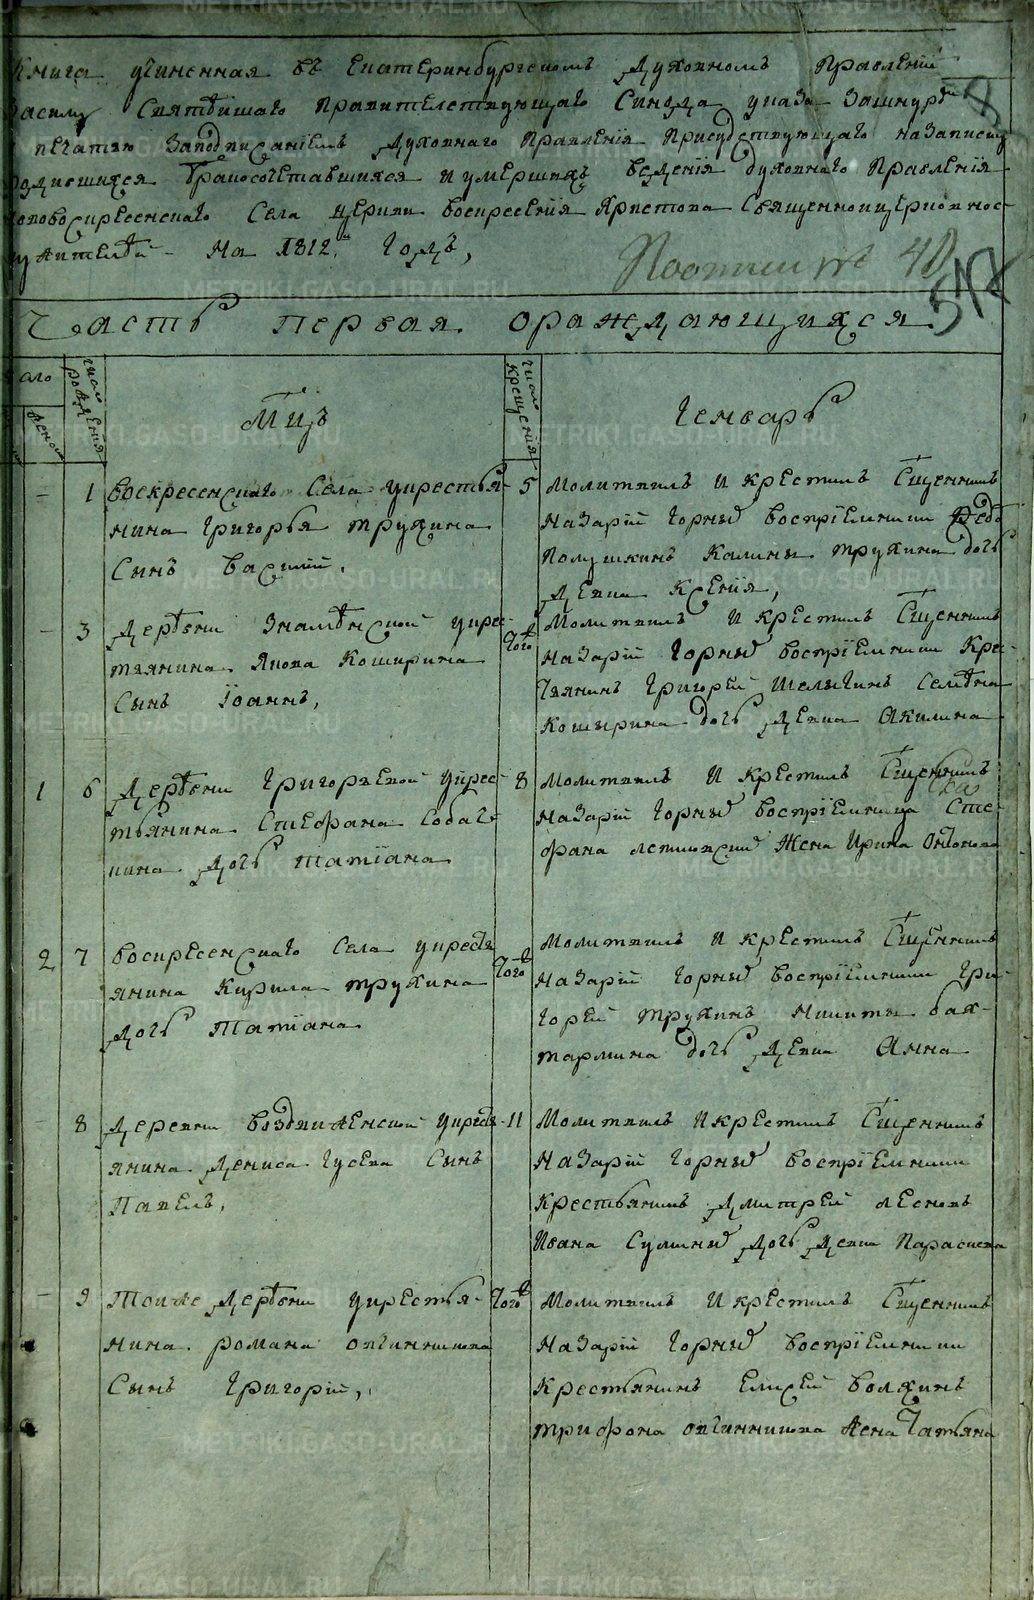 Книга учиненная въ Екатеринбургскомъ Духовномъ Правленіи
всилу Святѣйшаго Правителствующаго Синода указа Зашнуръ
печатью Заподписаніемъ Духовнаго Правленія Присудствующаго назаписку
родившихся бракосочетавшихся и умершихъ веденія духовнаго Правленія
Новоскресенскаго Села церкви Воскресенія Христова Священноицерковнос
лужителѣй На 1812й Годъ,
40
517
Часть Первая ораждающихся
число рожденія
Мцъ
число крещенія
Генварь
- 1 Воскресенскаго Села укрестья-
нина Григорья Трухина
Сынъ Василій,
5 Молитвилъ И крестилъ Сщенникъ
Назарій Горныхъ воспріемники
Полушкинъ Калины Трухина дочь
Девка Ксенія,
- 3 Дерѣвни Знамѣнской укрес-
тьянина Якова Кошкрина
Сынъ Іоаннъ,
того Молитвилъ И крестилъ Сщенникъ
Назарій Горныхъ воспріемники Кре-
стьянинъ Григорей Шелыгинъ Семѣна
дочь Девка Акилина
1 6 Дерѣвни Григорьевой укрес-
тьянина Стефана Собаче-
кина Дочь Татіана
8 Молитвилъ И крестилъ Сщенникъ
Назарій Горныхъ воспріемница Сте-
фана Жена Ирина
2 7 Воскресенскаго Села укрестья
янина Кирила Трухина
Дочь Татіана
того Молитвилъ И крестилъ Сщенникъ
Назарій Горныхъ воспріемники Гри-
горей Трухинъ Никиты бах-
тармина дочь Девка Анна
8 Деревни Воздвиженской укрестья-
янина Дениса Гусева Сынъ
Павелъ,
11 Молитвилъ И крестилъ Сщенникъ
Назарій Горныхъ воспріемники
крестьянинъ Дмитрей лесновъ
Ивана Суминыхъ Дочь Девка Параскева
- 9 Тоиже Дерѣвни укрестья-
нина Романа овчинникова
Сынъ Григорій,
того Молитвилъ И крестилъ Сщенникъ
Назарій Горныхъ воспріемники
крестьянинъ Елисей волхинъ
трифона овчинникова жена татьяна
METRIKI.GASO-URAL.RU